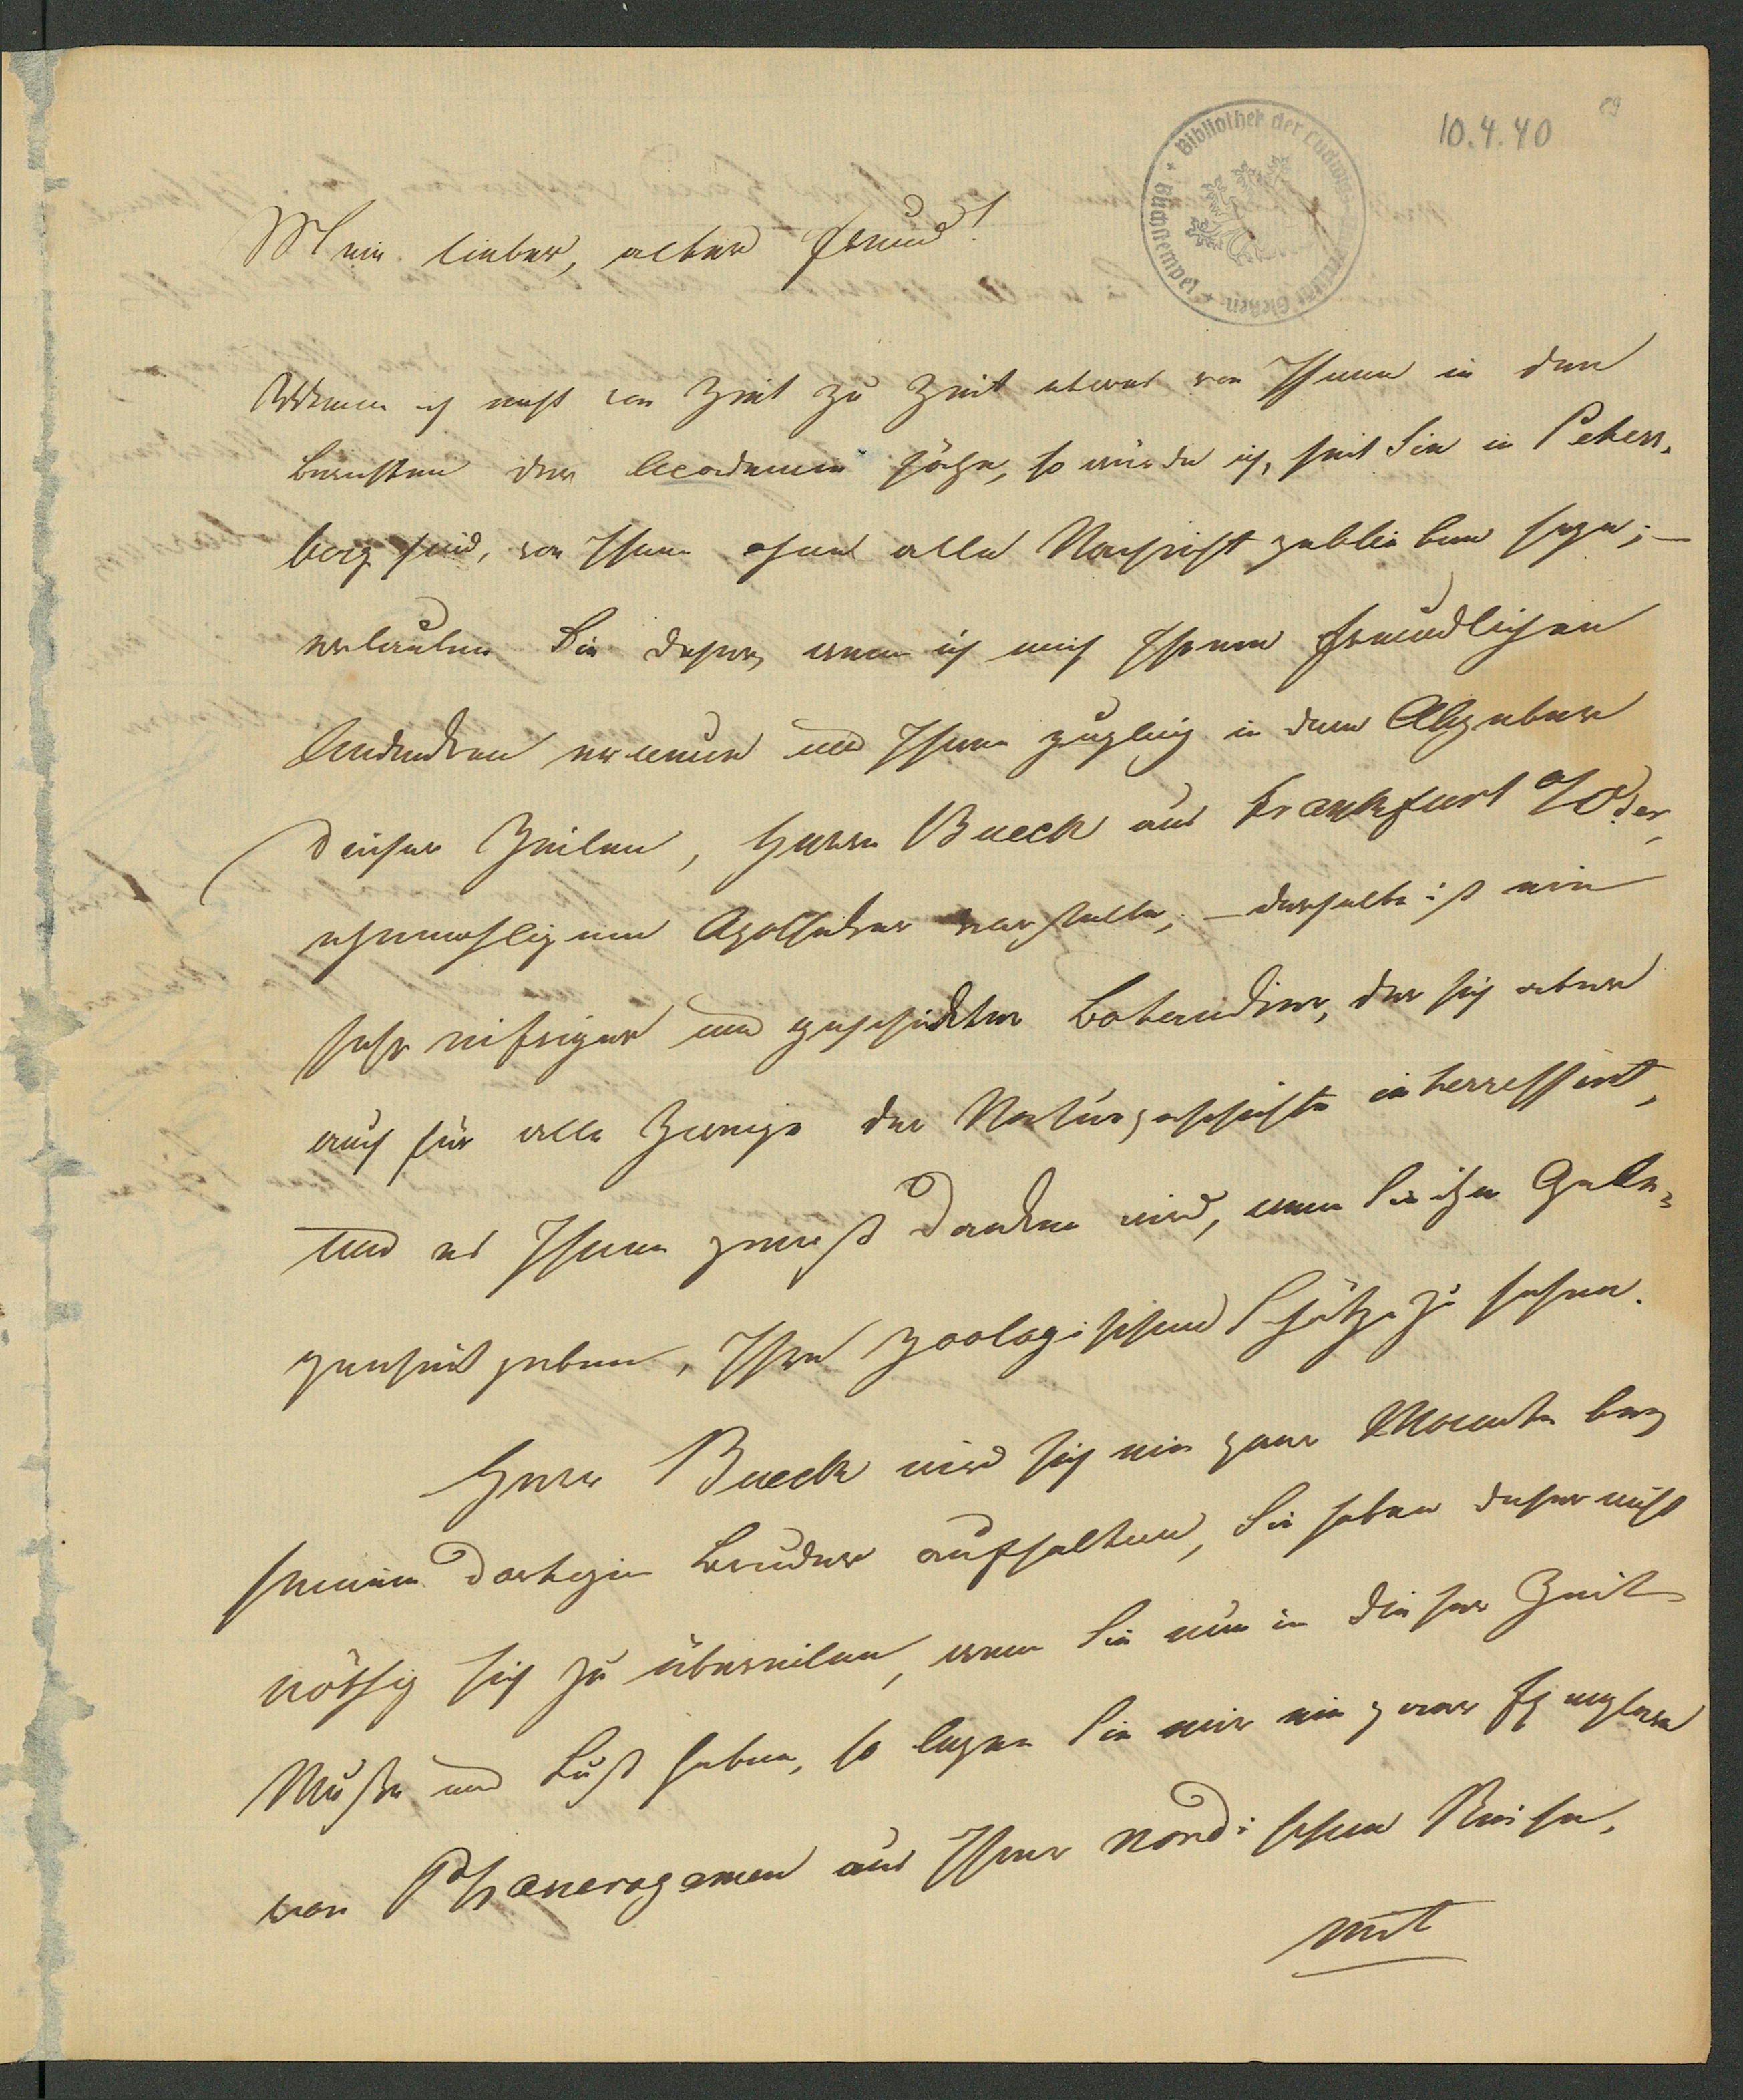 89
10.4.40
Bibliothek der Ludwigs-Universität Gießen
Mein lieber, alter Freund!
Wenn ich nicht von Zeit zu Zeit etwas von Ihnen in den
Berichten der Academie sähe, so würde ich, seit Sie in Peters-
borg sind, von Ihnen ohne alle Nachricht geblieben seyn; –
erlauben Sie daher, wenn ich mich Ihrem freundlichen
Andenken erneure und Ihnen zugleich in dem Abgeber
dieser Zeilen, Herrn Bueck aus Frankfurt a/Oder,
ehemahligem Apotheker vorstelle, – derselbe ist ein
sehr eifriger und geschickter Botaniker, der sich aber
auch für alle Zweige der Naturgeschichte interressirt,
und es Ihnen gewiß danken wird, wenn Sie ihm Gele-
genheit geben, Ihre zoologischen Schätze zu sehen.
Herr Bueck wird sich ein paar Monate bey
seinem dortigen Bruder aufhalten, Sie haben daher nicht
nöthig sich zu übereilen, wenn Sie nun in dieser Zeit
Muße und Lust haben, so legen Sie mir ein paar Exemplare
von Phanerogamen aus Ihrer nordischen Reise,
mit